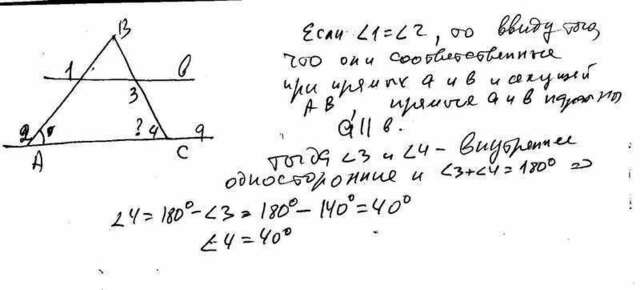 B
1
в
3
2
? 4
а
A
C
Если ∠1=∠2, то ввиду того,
что они соответственные
при прямых а и в и секущей
AB прямые а и в
a || в.
тогда ∠3 и ∠4 - внутренние
односторонние и ∠3+∠4=180° ⇒
∠4=180°-∠3=180°-140°=40°
∠4=40°